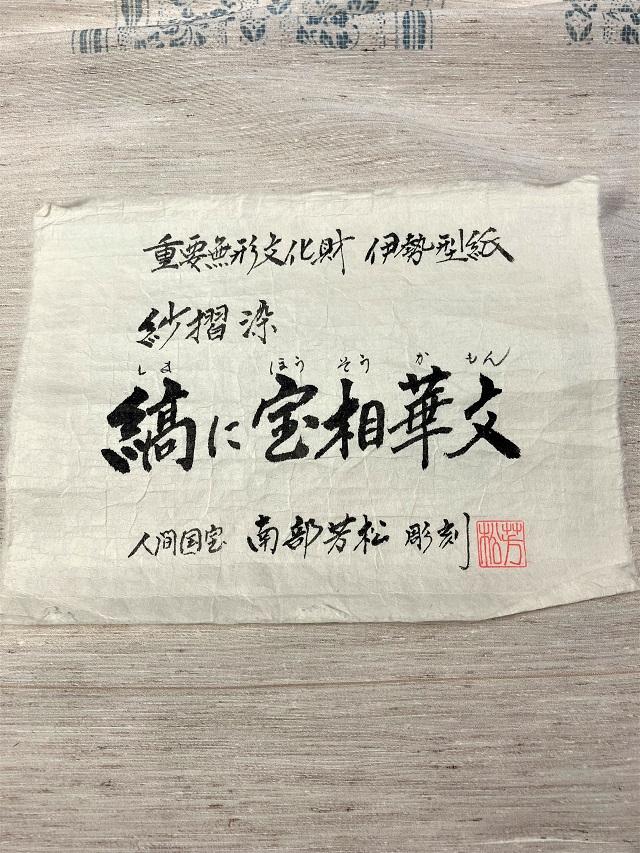 重要無形文化財 伊勢型紙
紗摺染
しま ほうそうかもん
縞に宝相華文
人間国宝 南部芳松 彫刻
芳松